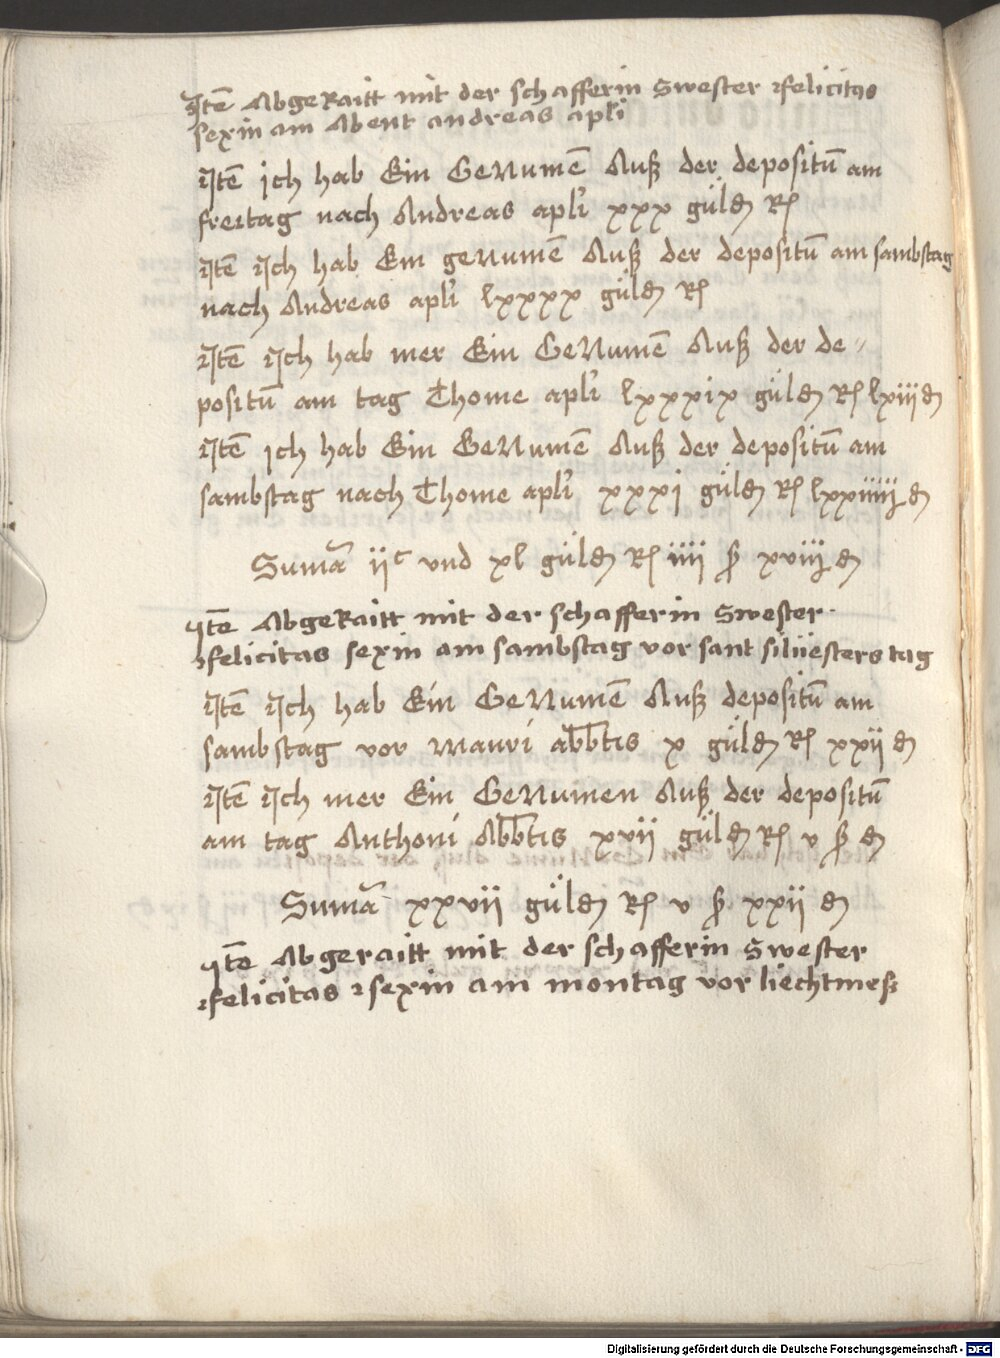 Jtē AbgeRaitt mit der schafferin Swester felicitas
sexin am Abent andreas apl̄i
Jtē ich hab Ein GeNumē Auß der depositū am
freitag nach Andreas apl̄i xxx gülđ Rſ
Jtē Jch hab Ein geNumē Auß der depositū am sambstag
nach Andreas apl̄i lxxxx gülđ Rſ
Jtē Jch hab mer Ein GeNumē Auß der de〃
positū am tag Thome apl̄i lxxxix gülđ Rſ lxiij đ
Jtē ich hab Ein GeNumē Auß der depositū am
sambstag nach Thome apl̄i xxxj gülđ Rſ lxxiiiij đ
Sum̄a ijᶜ vnd xl gülđ Rſ iiij ꝭ xviij đ
Jtē AbgeRaitt mit der schafferin Swester
felicitas sexin am sambstag vor sant siluesters tag
Jtē Jch hab Ein GeNumē Auß depositū am
sambstag vor Mauri abb̄tis x gülđ Rſ xxij đ
Jtē Jch mer Ein GeNumen Auß der depositū
am tag Anthoni Abb̄tis xvij gülđ Rſ v ꝭ đ
Sum̄a xxvij gülđ Rſ v ꝭ xxij đ
Jtē Abgeraitt mit der schafferin Swester
felicitas sexin am montag vor liechtmeß
Digitalisierung gefördert durch die Deutsche Forschungsgemeinschaft - DFG